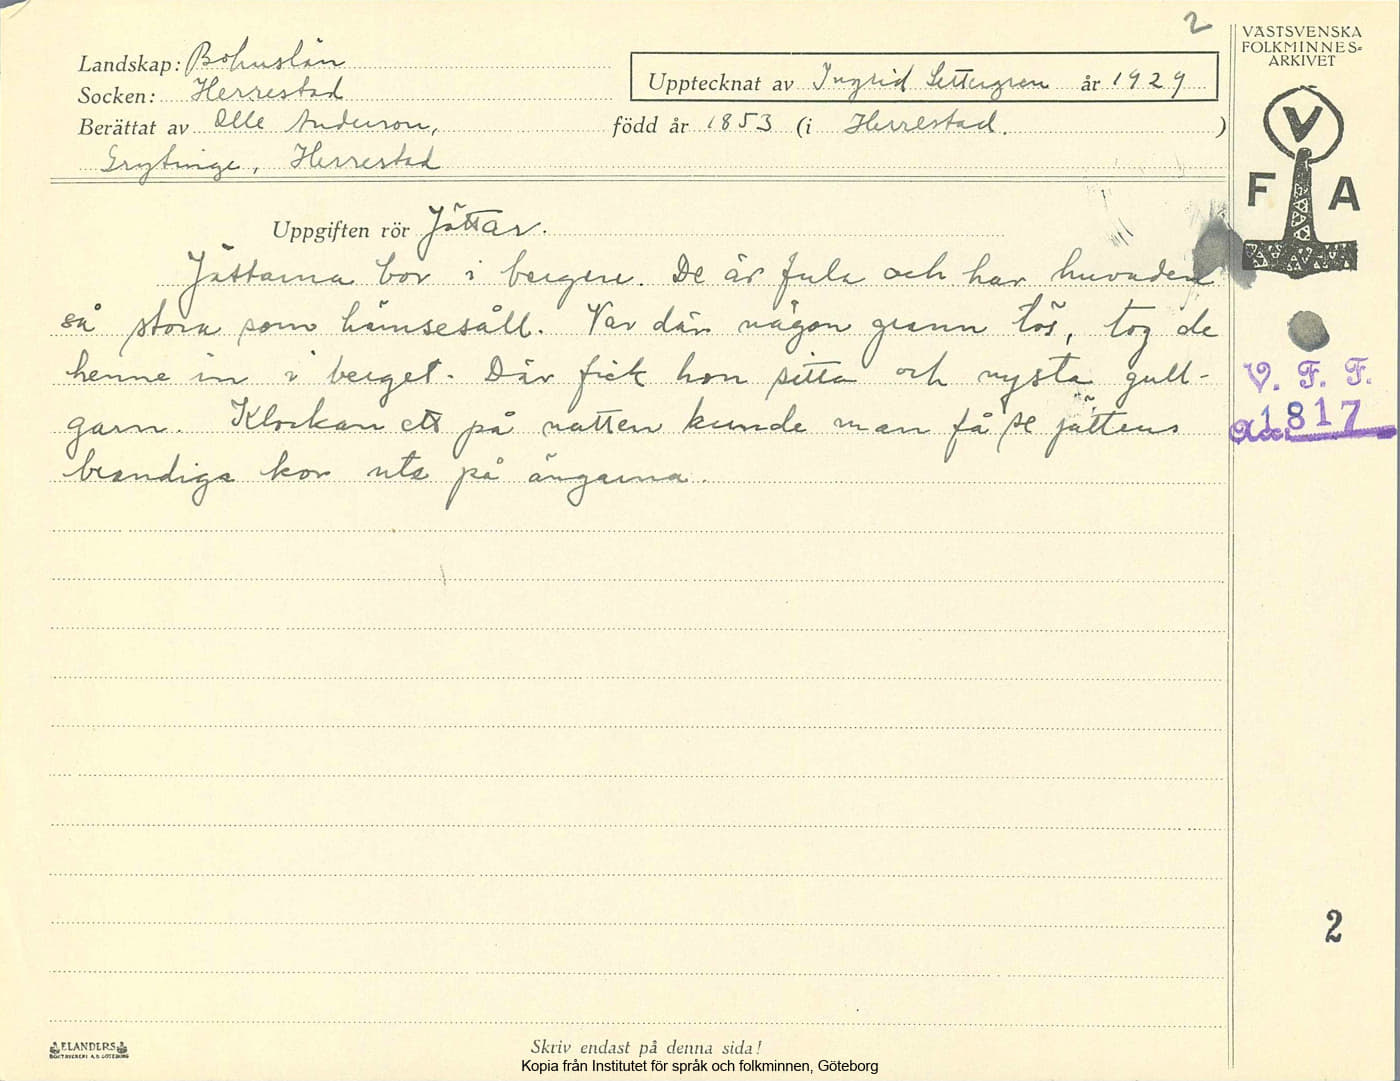 2
VÄSTSVENSKA
FOLKMINNES=
ARKIVET
Landskap: Bohuslän
Socken: Herrestad
Upptecknat av Ingrid Settergren år 1929
Berättat av Olle Anderson, född år 1853 (i Herrestad. )
Grytinge, Herrestad
V
F A
Uppgiften rör Jättar.
Jättarna bor i bergen. De är fula och har huvuden
så stora som hämsesåll. Var där någon grann tös, tog de
henne in i berget. Där fick hon sitta och nysta gull-
garn. Klockan ett på natten kunde man få se jättens
brandiga kor ute på ängarna.
V. F. F.
Acc. 1817
2
ELANDERS
BOKTRYCKERI A.B. GÖTEBORG
Skriv endast på denna sida!
Kopia från Institutet för språk och folkminnen, Göteborg